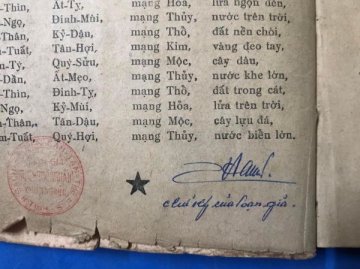 -Thìn, Ất-Tỵ, mạng Hỏa, lửa ngọn đèn,
-Ngọ, Đinh-Mùi, mạng Thủy, nước trên trời,
-Thân, Kỷ-Dậu, mạng Thổ, đất nền chòi,
-Tuất, Tân-Hợi, mạng Kim, vàng đeo tay,
-Tý, Quý-Sửu, mạng Mộc, cây dâu,
-Dần, Ất-Mẹo, mạng Thủy, nước khe lớn,
-Thìn, Đinh-Tỵ, mạng Thổ, đất trong cát,
-Ngọ, Kỷ-Mùi, mạng Hỏa, lửa trên trời,
-Thân, Tân-Dậu, mạng Mộc, cây lựu đá,
-Tuất, Quý-Hợi, mạng Thủy, nước biển lớn.
chữ ký của soạn giả.